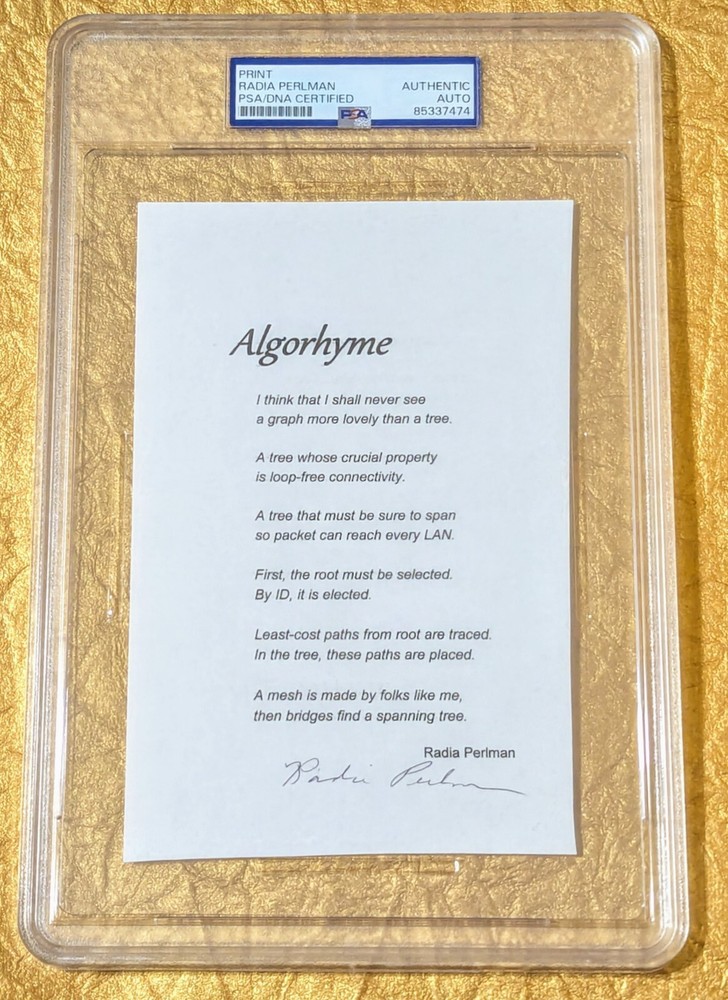 PRINT
RADIA PERLMAN AUTHENTIC
PSA/DNA CERTIFIED AUTO
PSA 85337474
Algorhyme
I think that I shall never see
a graph more lovely than a tree.
A tree whose crucial property
is loop-free connectivity.
A tree that must be sure to span
so packet can reach every LAN.
First, the root must be selected.
By ID, it is elected.
Least-cost paths from root are traced.
In the tree, these paths are placed.
A mesh is made by folks like me,
then bridges find a spanning tree.
Radia Perlman
Radia Perlman